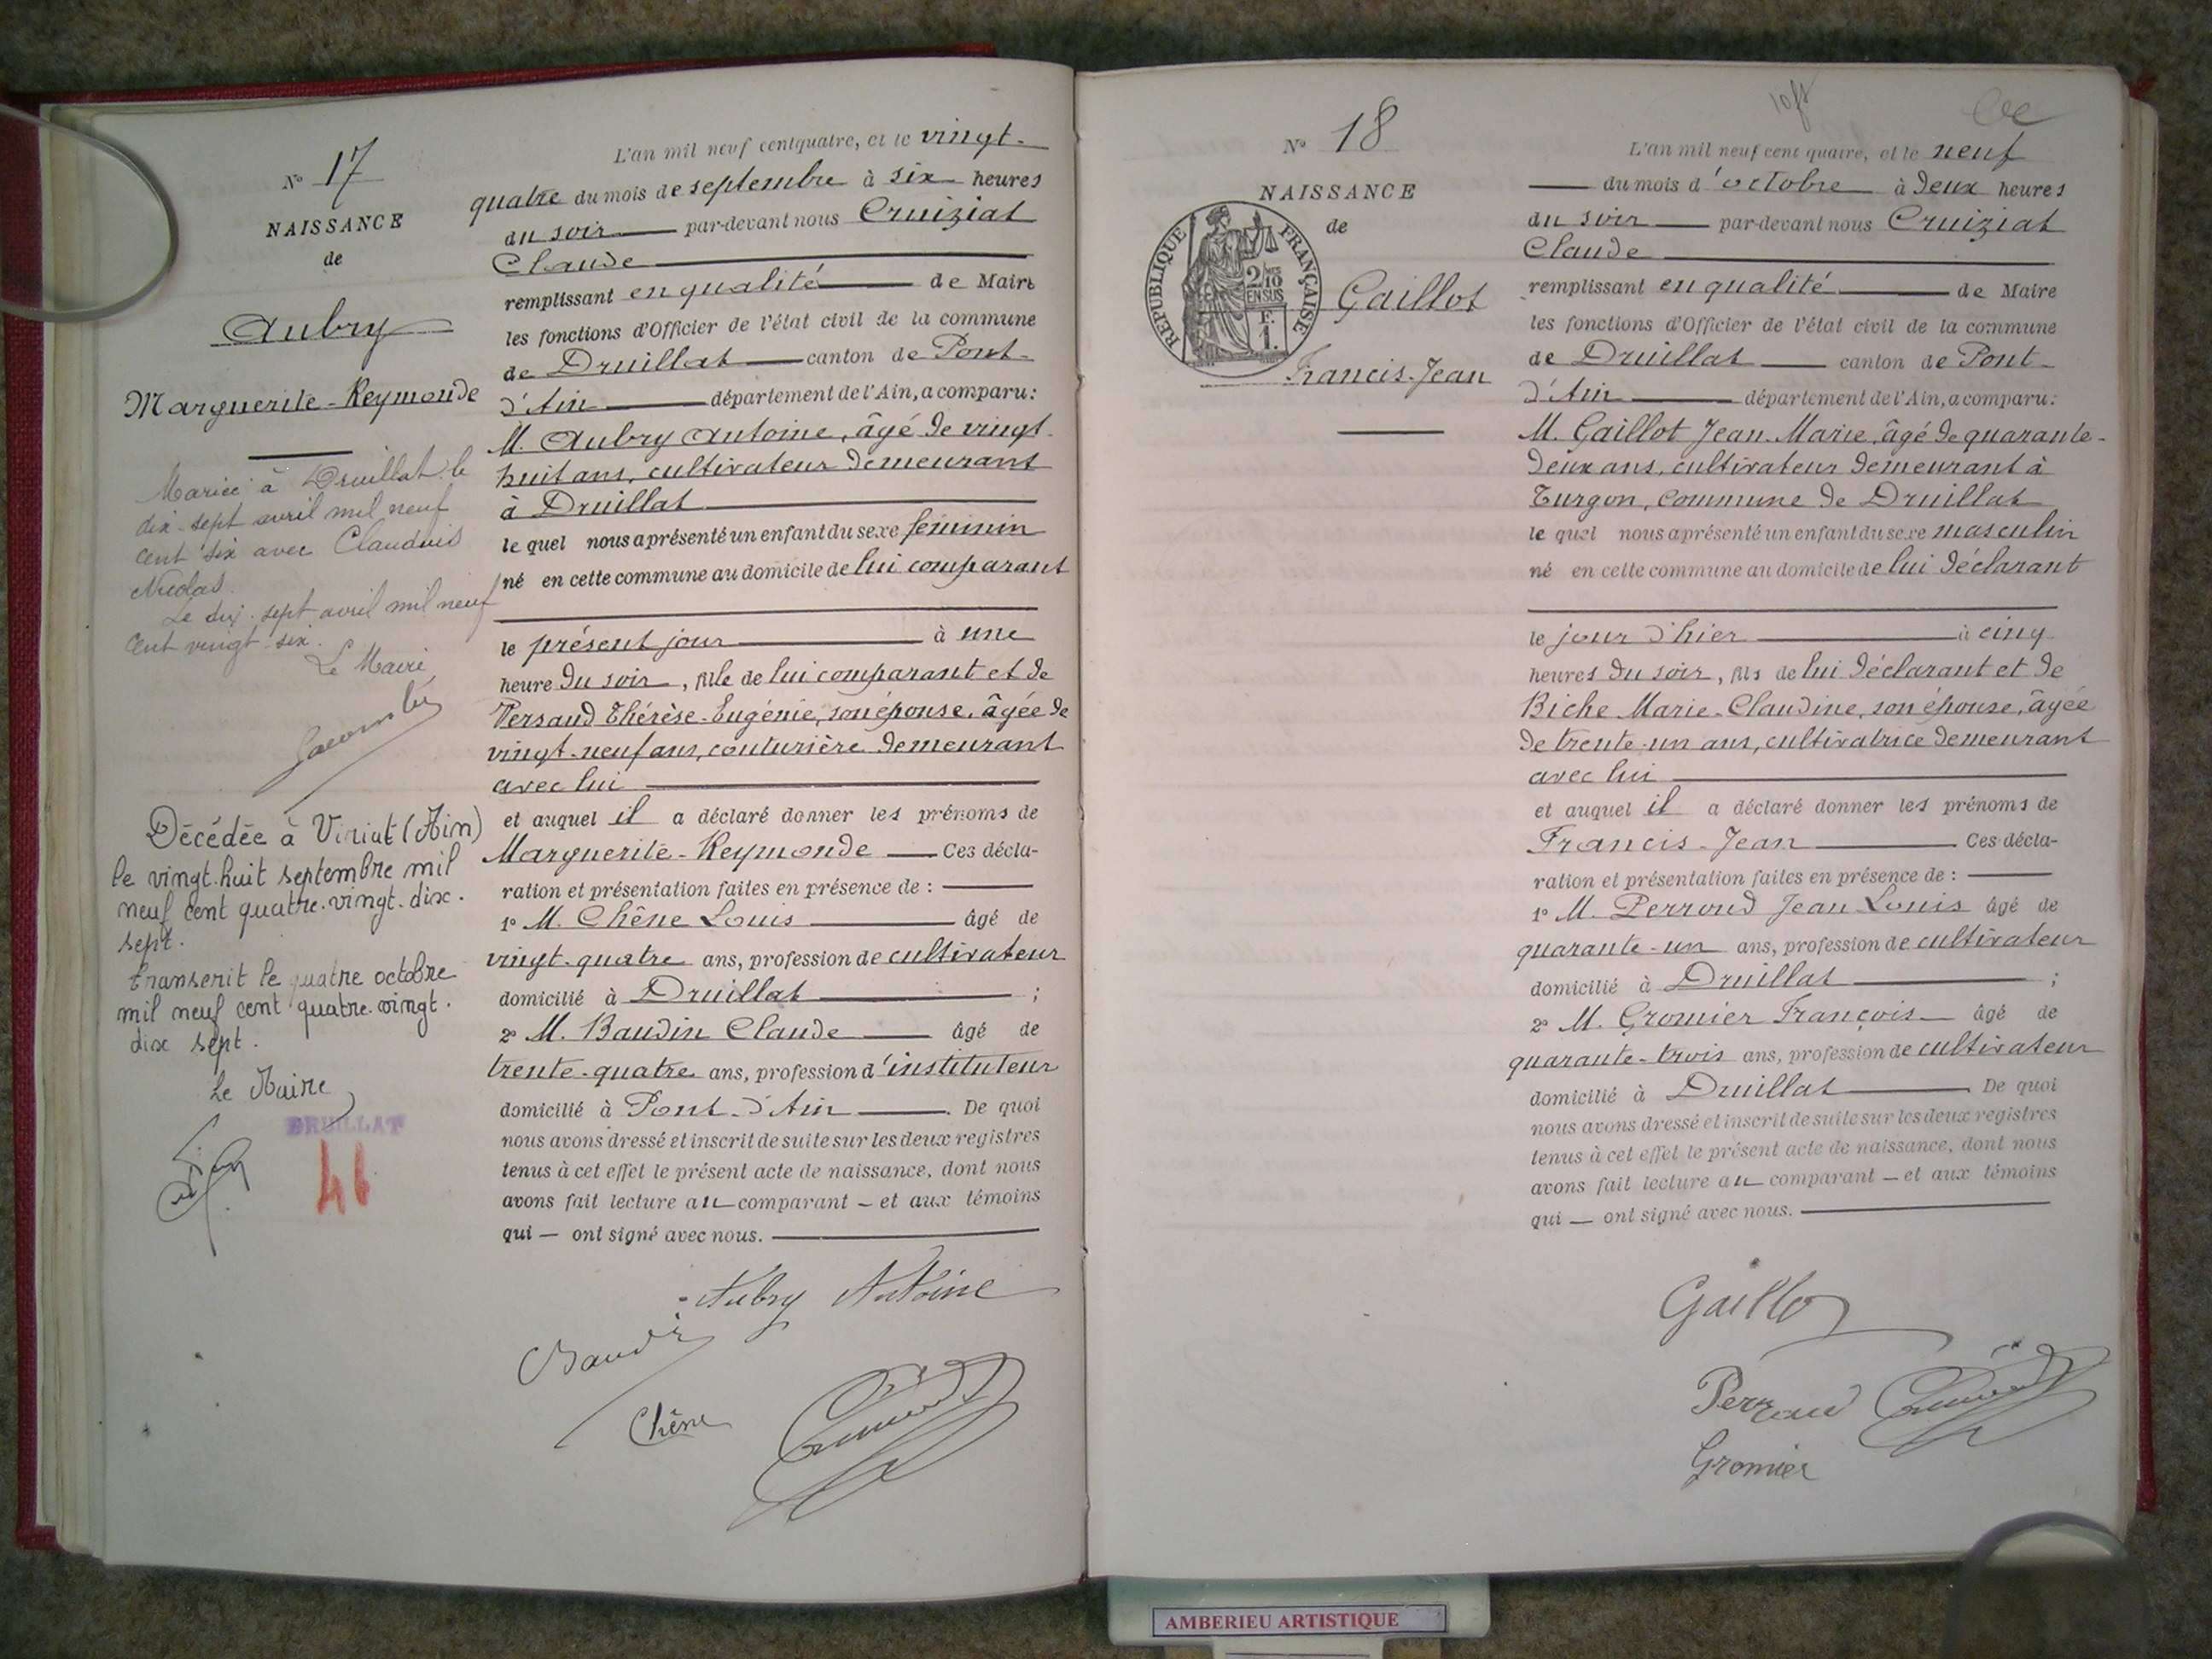 N° 17
NAISSANCE
de
Aubry
Marguerite-Reymonde
Mariée à Druillat le
dix-sept avril mil neuf
cent six avec Claudius
Nicolas.
Le dix-sept avril mil neuf
cent vingt six.
Le Maire
Décédée à Viriat (Ain)
le vingt.huit septembre mil
neuf cent quatre.vingt.dix.
sept.
transcrit le quatre octobre
mil neuf cent quatre.vingt.
dix sept.
Le Maire
DRUILLAT
46
L'an mil neuf cent quatre, et le vingt-
quatre du mois de septembre à six heures
du soir par-devant nous Cruiziat
Claude
remplissant en qualité de Maire
les fonctions d'Officier de l'état civil de la commune
de Druillat canton de Pont-
d'Ain département de l'Ain, a comparu:
M. Aubry Antoine, âgé de vingt-
huit ans, cultivateur demeurant
à Druillat
le quel nous a présenté un enfant du sexe féminin
né en cette commune au domicile de lui comparant
le présent jour à une
heure du soir, fille de lui comparant et de
Persaud Thérèse-Eugénie, son épouse, âgée de
vingt-neuf ans, couturière demeurant
avec lui
et auquel il a déclaré donner les prénoms de
Marguerite-Reymonde Ces décla-
ration et présentation faites en présence de :
1° M. Chêne Louis âgé de
vingt-quatre ans, profession de cultivateur
domicilié à Druillat ;
2° M. Baudin Claude âgé de
trente-quatre ans, profession d'instituteur
domicilié à Pont-d'Ain. De quoi
nous avons dressé et inscrit de suite sur les deux registres
tenus à cet effet le présent acte de naissance, dont nous
avons fait lecture au comparant – et aux témoins
qui – ont signé avec nous.
Aubry Antoine
Baudin
Chêne
Cruiziat
N° 18
NAISSANCE
de
REPUBLIQUE FRANÇAISE
2/10
EN SUS
F.
1.
Gaillot
Francis-Jean
L'an mil neuf cent quatre, et le neuf
du mois d'octobre à deux heures
du soir par-devant nous Cruiziat
Claude
remplissant en qualité de Maire
les fonctions d'Officier de l'état civil de la commune
de Druillat canton de Pont-
d'Ain département de l'Ain, a comparu:
M. Gaillot Jean-Marie, âgé de quarante-
deux ans, cultivateur demeurant à
Turgon, commune de Druillat
le quel nous a présenté un enfant du sexe masculin
né en cette commune au domicile de lui déclarant
le jour d'hier à cinq
heures du soir, fils de lui déclarant et de
Biche Marie-Claudine, son épouse, âgée
de trente-un ans, cultivatrice demeurant
avec lui
et auquel il a déclaré donner les prénoms de
Francis-Jean Ces décla-
ration et présentation faites en présence de :
1° M. Perroud Jean Louis âgé de
quarante-un ans, profession de cultivateur
domicilié à Druillat ;
2° M. Gromier François âgé de
quarante-trois ans, profession de cultivateur
domicilié à Druillat De quoi
nous avons dressé et inscrit de suite sur les deux registres
tenus à cet effet le présent acte de naissance, dont nous
avons fait lecture au comparant – et aux témoins
qui – ont signé avec nous.
Gaillot
Perroud Cruiziat
Gromier
AMBERIEU ARTISTIQUE